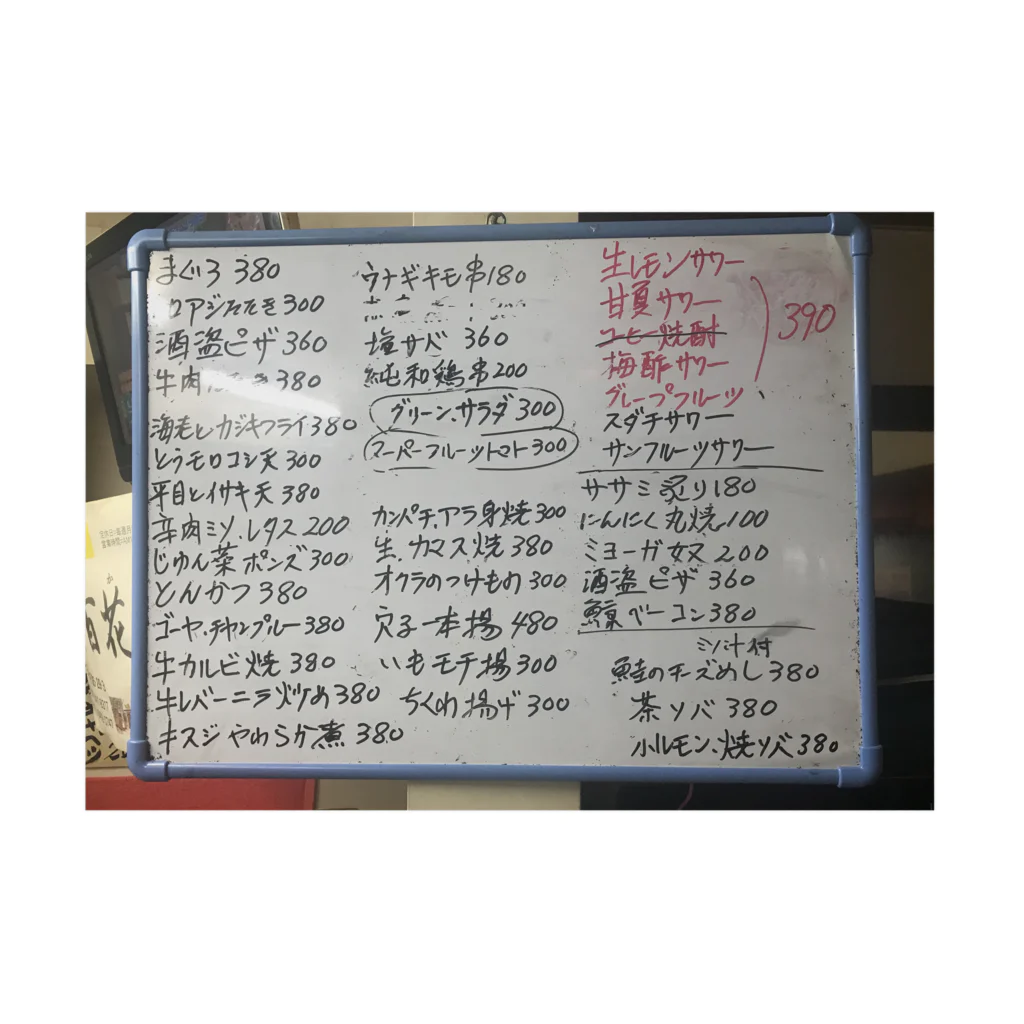 まぐろ 380
ロアジたたき 300
酒盗ピザ 360
牛肉たたき 380
海老とカジキフライ 380
とうモロコシ天 300
平目とイサキ天 380
辛肉ミソ.レタス 200
じゅん菜ポンズ 300
とんかつ 380
ゴーヤ.チャンプルー 380
牛カルビ焼 380
牛レバーニラ炒め 380
キスジやわらか煮 380
ウナギキモ串 180
塩サバ 360
純和鶏串 200
グリーン.サラダ 300
スーパーフルーツトマト 300
カンパチ.アラ身焼 300
生.カマス焼 380
オクラのつけもの 300
穴子一本揚 480
いもモチ揚 300
ちくわ揚げ 300
生レモンサワー
甘夏サワー
コーヒー焼酎
梅酢サワー
グレープフルーツ
390
スダチサワー
サンフルーツサワー
ササミ炙り 180
にんにく丸焼 100
ミョーガ奴 200
酒盗ピザ 360
鯨ベーコン 380
ミソ汁付
鮭のチーズめし 380
茶ソバ 380
ホルモン.焼ソバ 380
百花